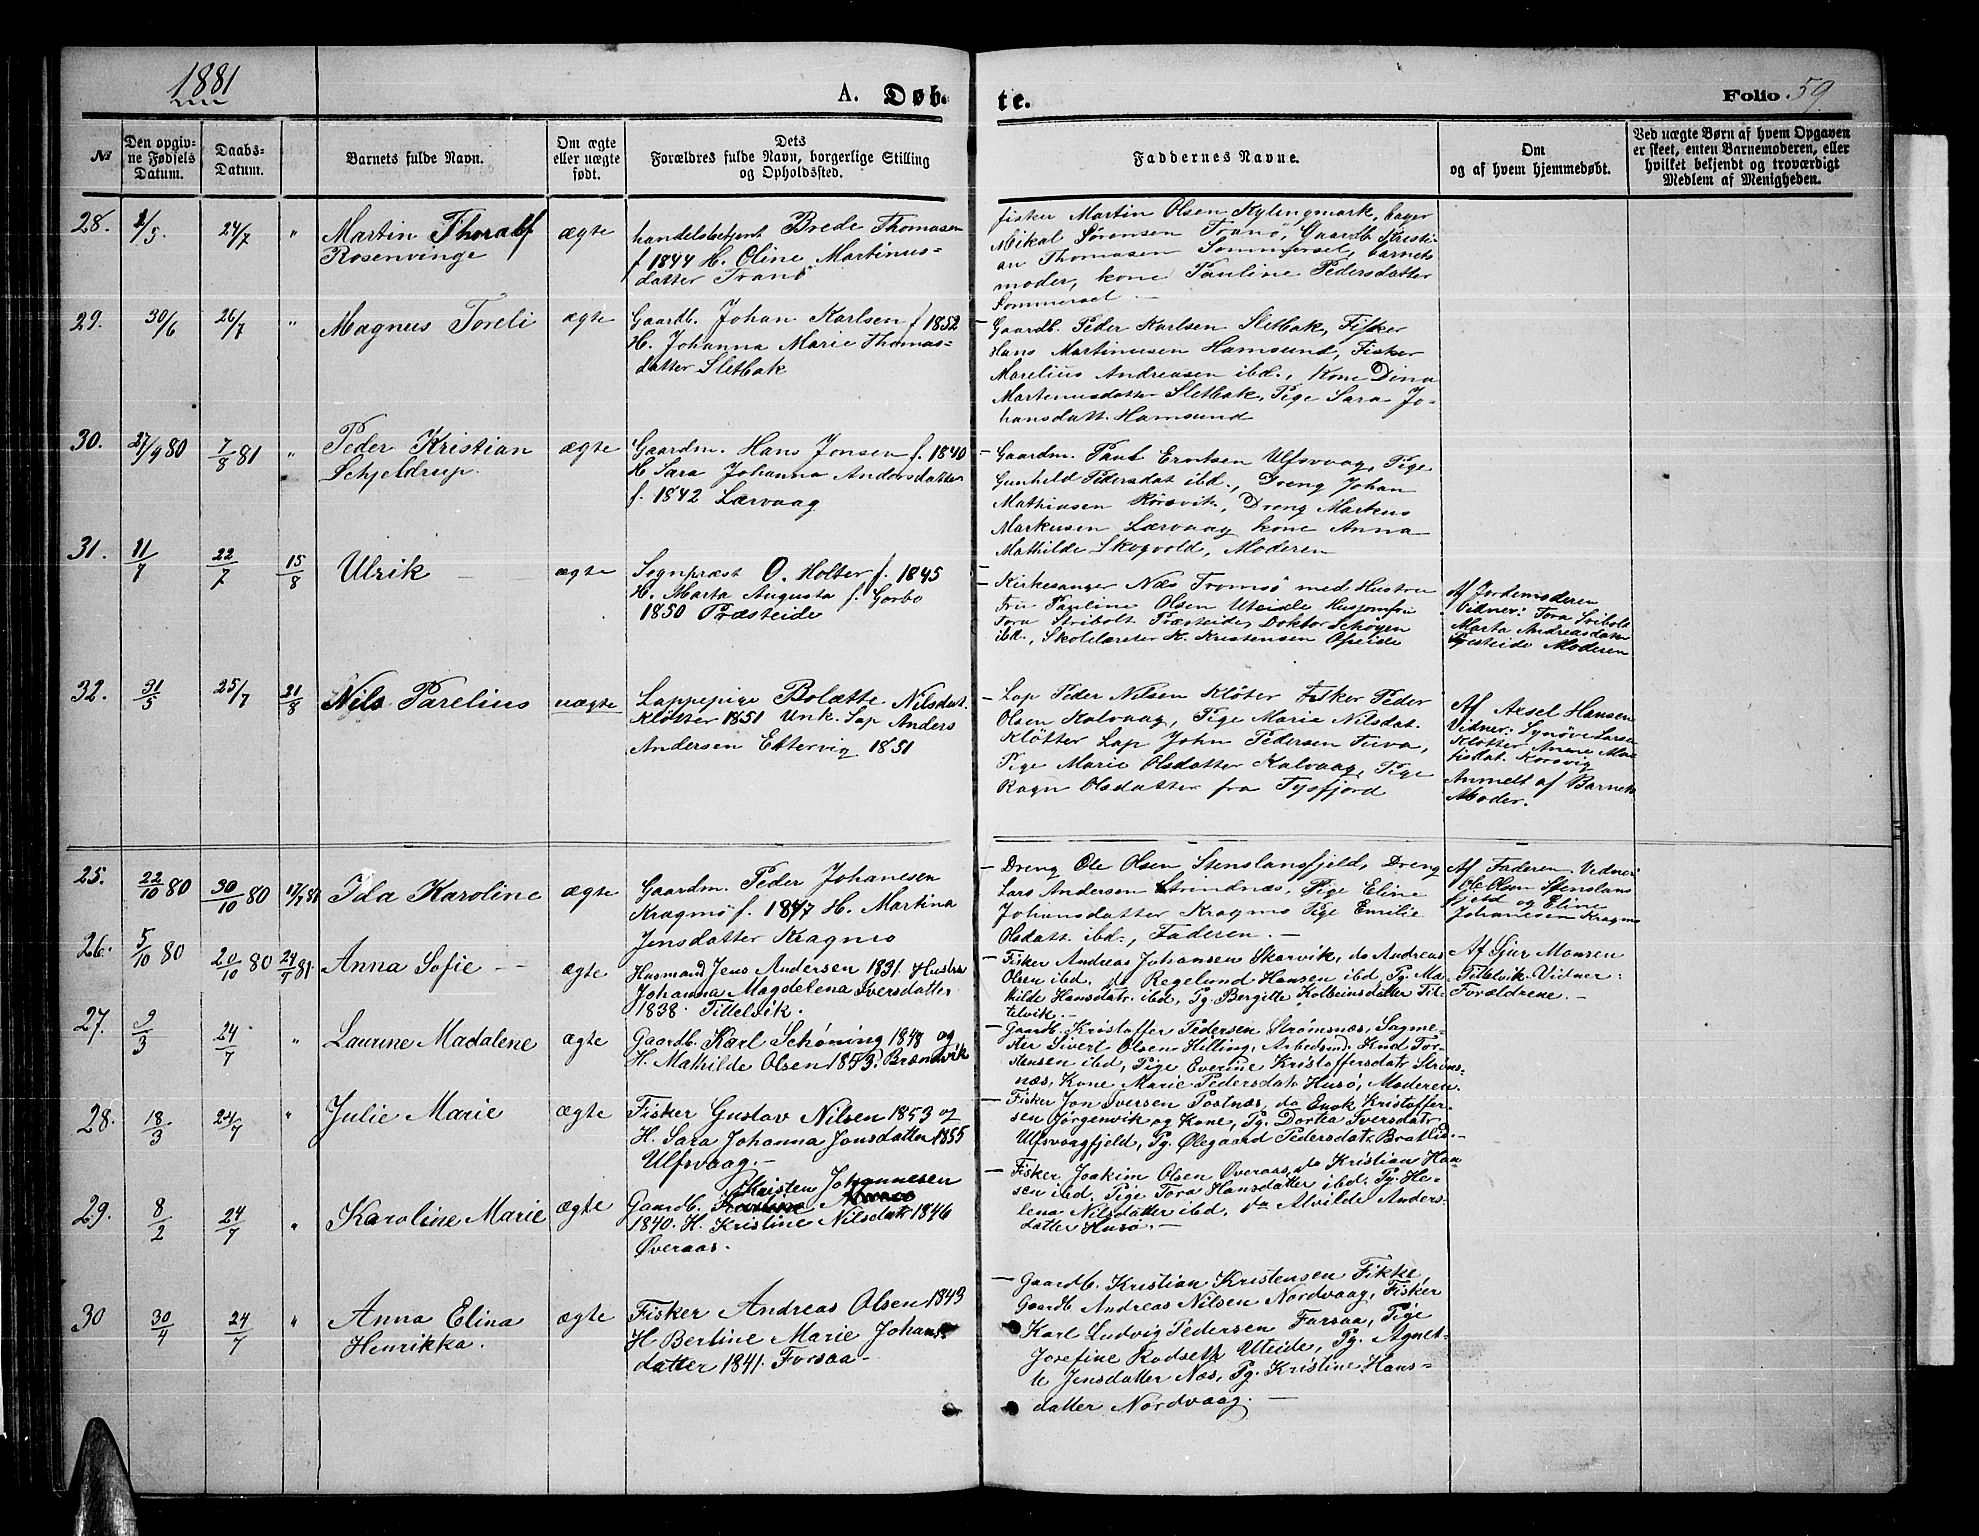 1881
A. Døb-
te.
Folio 59.
№
Den opgiv-
ne Fødsels
Datum.
Daabs-
Datum.
Barnets fulde Navn.
Om ægte
eller uægte
født.
Dets
Forældres fulde Navn, borgerlige Stilling
og Opholdssted.
Faddernes Navne.
Om
og af hvem hjemmedøbt.
Ved uægte Børn af hvem Opgaven
er skeet, enten Barnemoderen, eller
hvilket bekjendt og troværdigt
Medlem af Menigheden.
28. 2/5. 24/7 " Martin Thoralf
Rosenvinge
ægte
handelsbetjent Brede Thomasen
f 1844 H. Oline Martinus-
datter Tranö
fisker Martin Olsen Kylingmark, bager
Mikal Sørensen Tranö, Gaardb. Kristi-
an Thomasen Sommersel, barnets
moder, kone Pauline Pedersdatter
Sommersel —
29. 30/6 26/7 " Magnus Toreli
ægte
Gaardb. Johan Karlsen f 1852
H. Johanna Marie Thomas-
datter Sletbak
— Gaardb. Peder Karlsen Sletbak, Fisker
Hans Martinusen Hamsund, Fisker
Marelius Andreasen ibd., Kone Dina
Martenusdatter Sletbak, Pige Sara Jo-
hansdatt. Hamsund
30. 27/9 80 7/8 81 " Peder Kristian
Schjeldrup.
ægte
Gaardm. Hans Jonsen f. 1840
H Sara Johanna Andersdatter
f. 1842 Lærvaag
— Gaardm. Paul Evertsen Ulfsvaag, Pige
Gunhild Pedersdat ibd., Dreng Johan
Mathiasen Korsvik, Dreng Markus
Markusen Lærvaag kone Anna
Mathilde Skogvold, Moderen
31. 11/7 22/7 15/8 Ulrik —
ægte
Sognpræst O. Holter f. 1845
H. Marta Augusta f. Gorbo
1850 Præsteide
— Kirkesanger Næs Tromsö med Hustru
Fru Pauline Olsen Uteide Husjomfru
Tora Stribolt Præsteide, Doktor Schøyen
ibd., Skolelærer K. Kristensen Opeide
Af Jordemoderen
Vidner: Tora Sribolt
Marta Andreasdatter
Præsteide Moderen
32. 31/5 25/7 21/8 Nils Parelius
uægte
Lappepige Bolætte Nilsdat.
Kløtter 1851 Unk. Lap Anders
Andersen Ettervig 1851
— Lap Peder Nilsen Kløter Fisker Peder
Olsen Kalvaag, Pige Maria Nilsdat.
Kløtter Lap John Pedersen Tuva,
Pige Marie Olsdatter Kalvaag, Pige
Ragn Olsdatter fra Tysfjord
Af Axel Hansen
Vidner: Synöve Larsen
Kløtter Anne Ma-
tisdat. Korsvig
Anmelt af Barnets
Moder.
25. 22/10 80 30/10 80 17/7 81 Ida Karoline
ægte
Gaardm. Peder Johanesen
Kragmö f. 1847 H. Martina
Jensdatter Kragmo
— Dreng Ole Olsen Stenslandfjeld, Dreng
Lars Andersen Strindnæs, Pige Eline
Johansdatter Kragmo Pige Emilie
Olsdatt. ibd., Faderen. —
Af Faderen Vidner
Ole Olsen Stenslans
fjeld og Eline
Johanesen Kragmo
26. 5/10 80 20/10 80 24/7 81. Anna Sofie —
ægte
Husmand Jens Andersen 1831. Hustru
Johanna Magdelena Iversdatter
1838. Tittelvik.
— Fisker Andreas Johansen Skarvik, do Andreas
Olsen ibd. do Regelund Hansen ibd, Pg. Ma-
thilde Hansdatr. ibd, Pg. Bergitte Kolbeinsdatter Tit-
telvik. —
Af Gjur Monsen
Tittelvik. Vidner:
Forældrene. —
27. 9/3 24/7 " Laurine Madalene
ægte
Gaardb. Karl Schøning 1848 og
H. Mathilde Olsen 1853. Brændvik
— Gaardb. Kristoffer Pedersen Strømsnæs, Sagme-
ster Sivert Olsen Hilling, Arbedsmd. Knud Tor-
stensen ibd, Pige Everine Kristoffersdatr Strøms-
næs, Kone Marie Pedersdatr Husø, Moderen.
28. 18/3 24/7 " Julie Marie
ægte
Fisker Gustav Nilsen 1853 og
H. Sara Johanna Jonsdatter 1855
Ulfsvaag. —
— Fisker Jon Iversen Postnæs, do Enok Kristoffer-
sen Jørgenvik og Kone, Pg. Dortea Iversdatr
Ulfsvaagfjeld, Pg. Ølegaard Pedersdatr Bratli. —
29. 8/2 24/7 " Karoline Marie
ægte
Gaardb. Kristen Johannesen
1840. H. Kristine Nilsdatr 1846
Øveraas.
— Fisker Joakim Olsen Øveraas, do Kristian Han-
sen ibd. Pige Tora Hansdatter ibd. Pg. He-
lena Nilsdatter ibd. do Alvilde Anders-
datter Husø. —
30 30/4 24/7 " Anna Elina
Henrikka.
ægte
Fisker Andreas Olsen 1843
H. Bertine Marie Johans-
datter 1841. Forsaa —
— Gaardb. Kristian Kristensen Fikke,
Gaardb Andreas Nilsen Nordvaag, Fisker
Karl Ludvig Pedersen Forsaa, Pige
Josefine Rodseth Uteide, Pg. Agnet-
te Jensdatter Næs, Pg. Kristine Hans-
datter Nordvaag. —